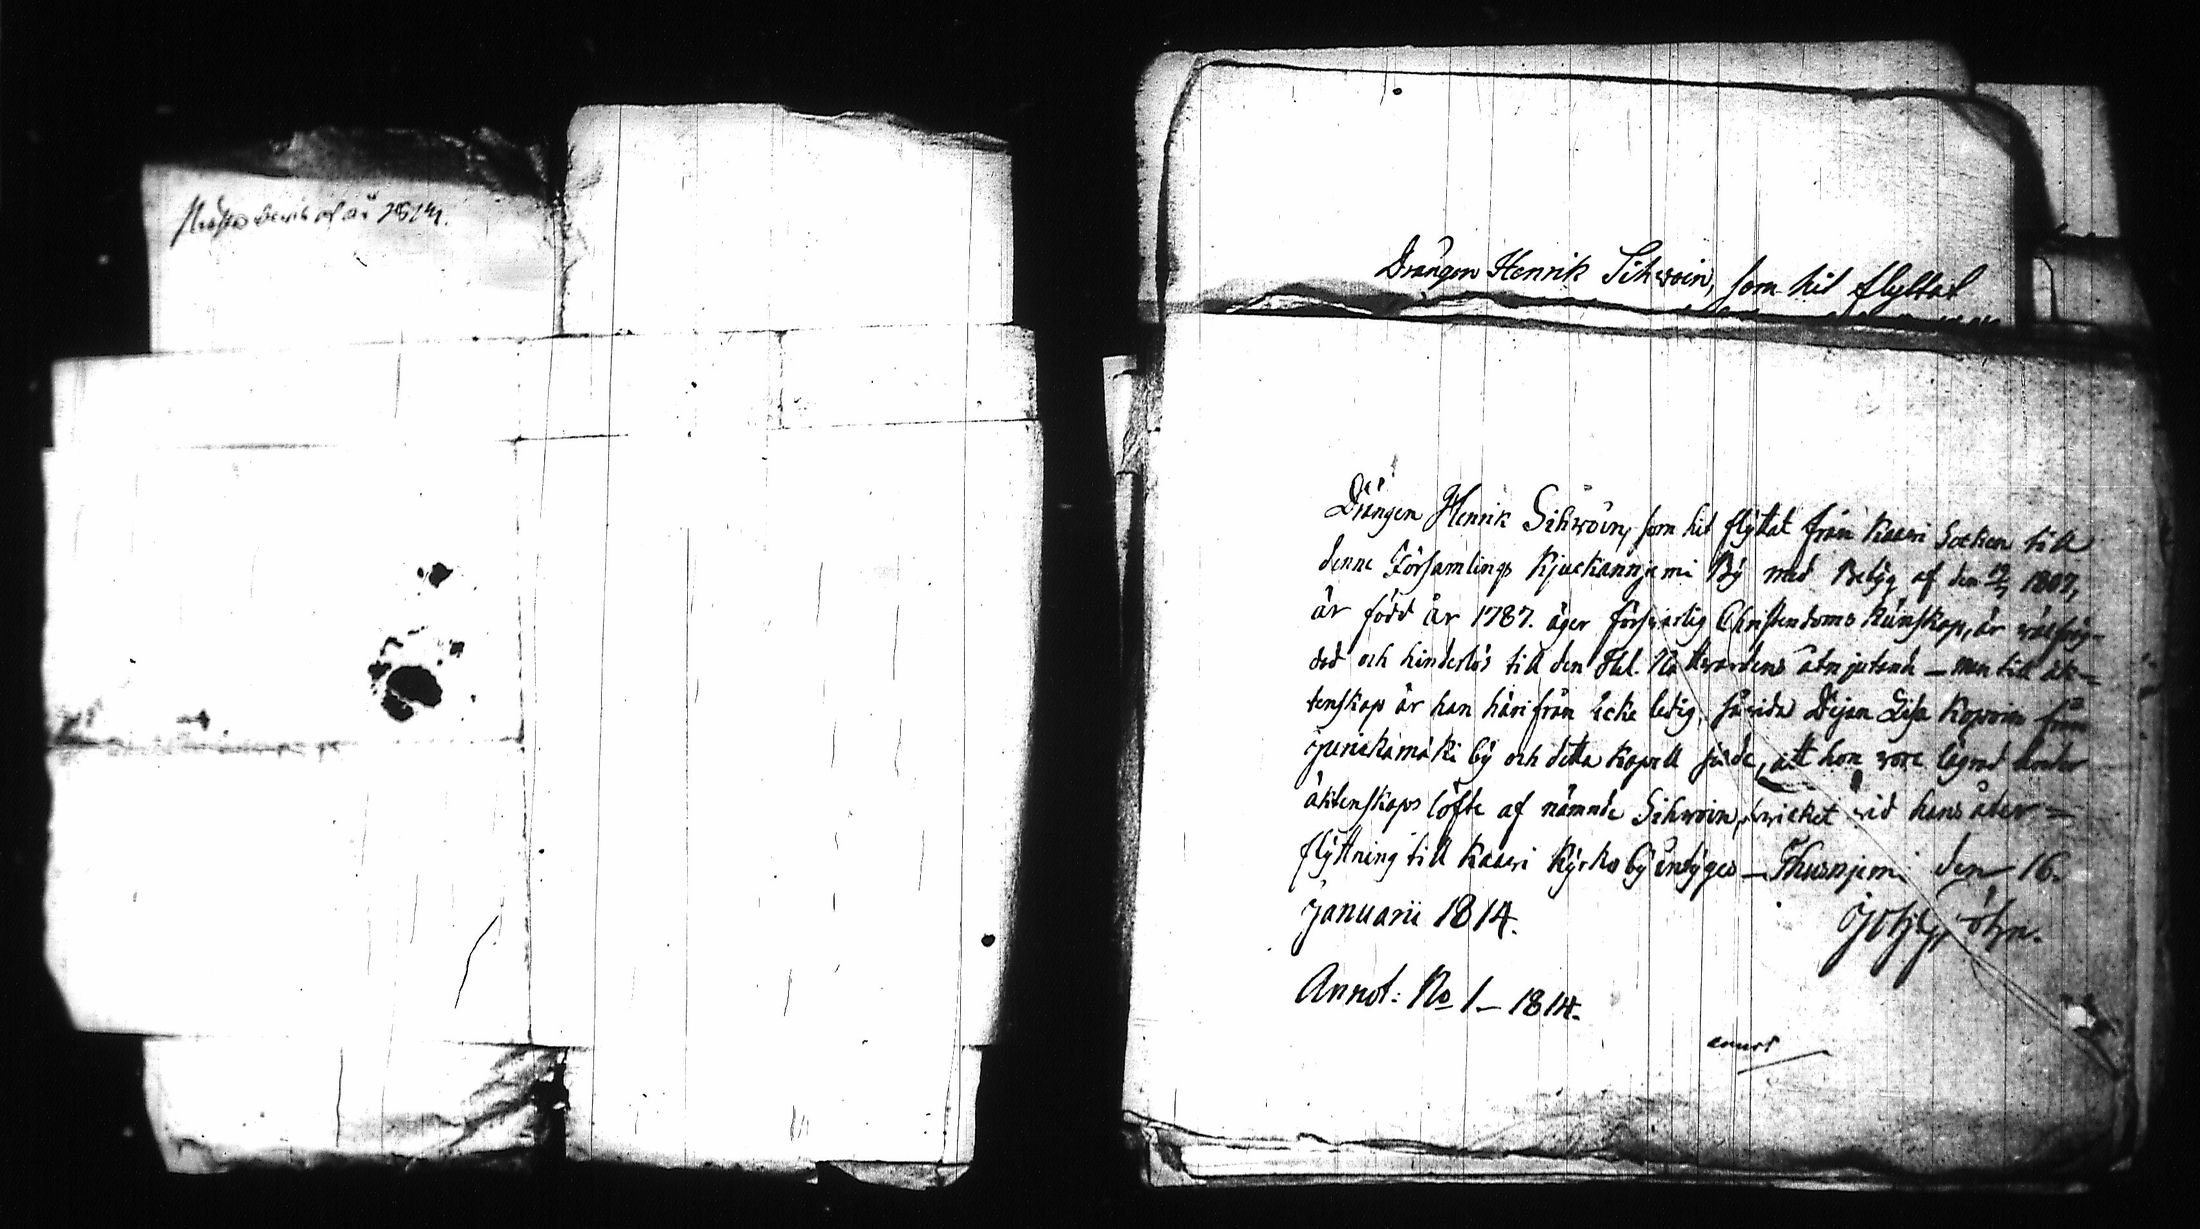 af år 1814.
Drängen Henrik Sihwoin, som hit flyttat
Drängen Henrik Sihwoin, som hit flyttat från Kaavi Socken till
denne Församlings Kjuckannjemi By med Betyg af den 19/7 1807,
är född år 1787. äger försvarlig Christendoms kunskap, är välfräg-
dad och hinderlös till den Hel. Nattvardens åtnjutande – men till äk=
tenskap är han härifrån icke ledig, såvida Pigan Lisa Kopoin från
Junickamäki by och detta Kapell säde, att hon vore lägrad under
äktenskaps löfte af nämnde Sihwoin, hwilket vid hans åter=
flyttning till Kaavi Kyrko by intygas – Thusnjemi den 16.
Januarii 1814.
Annot: No 1 – 1814.